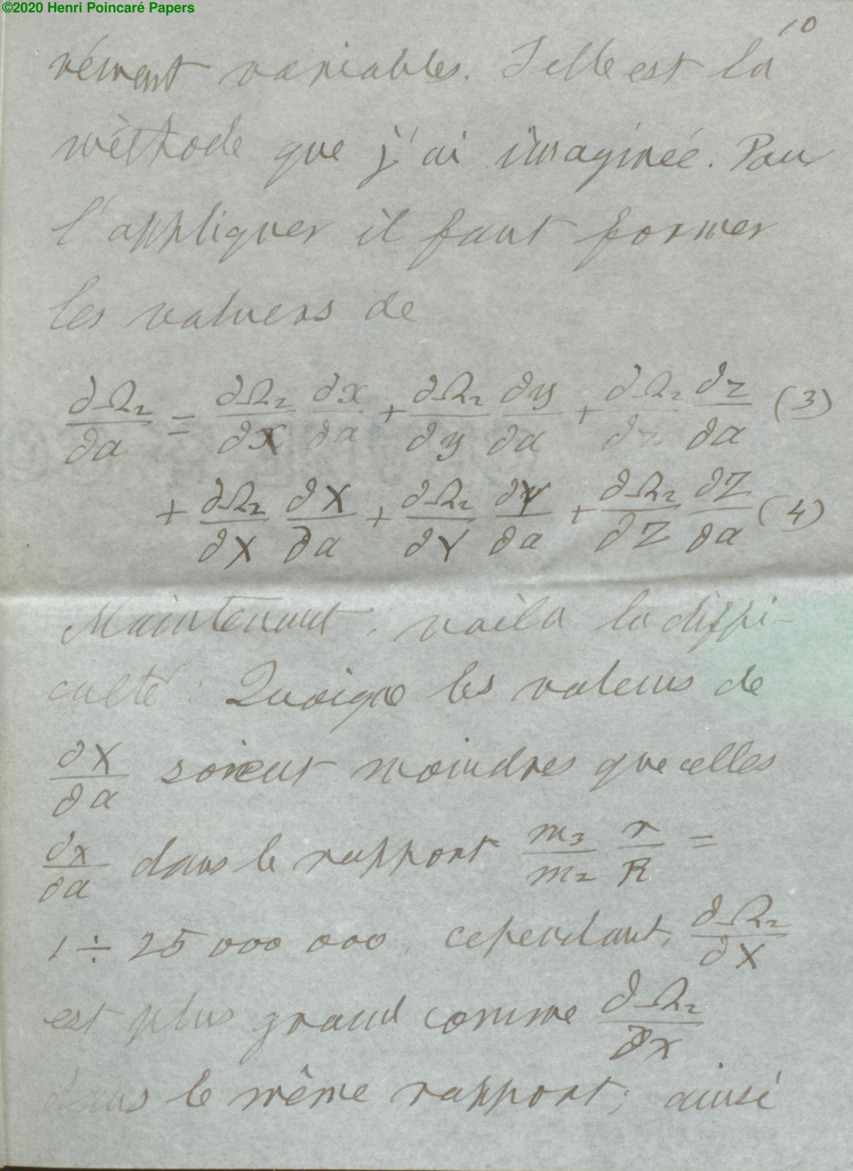 ©2020 Henri Poincaré Papers
10
rément variables. Telle est la
méthode que j'ai imaginée. Pour
l'appliquer il faut former
les valuers de
∂Ω₂/∂a = ∂Ω₂/∂x ∂x/∂a + ∂Ω₂/∂y ∂y/∂a + ∂Ω₂/∂z ∂z/∂a (3)
+ ∂Ω₂/∂X ∂X/∂a + ∂Ω₂/∂Y ∂Y/∂a + ∂Ω₂/∂Z ∂Z/∂a (4)
Maintenant, voila la diffi-
culté: Quoique les valeurs de
∂X/∂a soient moindres que celles
∂x/∂a dans le rapport m₃/m₂ r/R =
1 ÷ 25 000 000, cependant, ∂Ω₂/∂X
est plus grand comme ∂Ω₂/∂x
dans le même rapport; ainsi